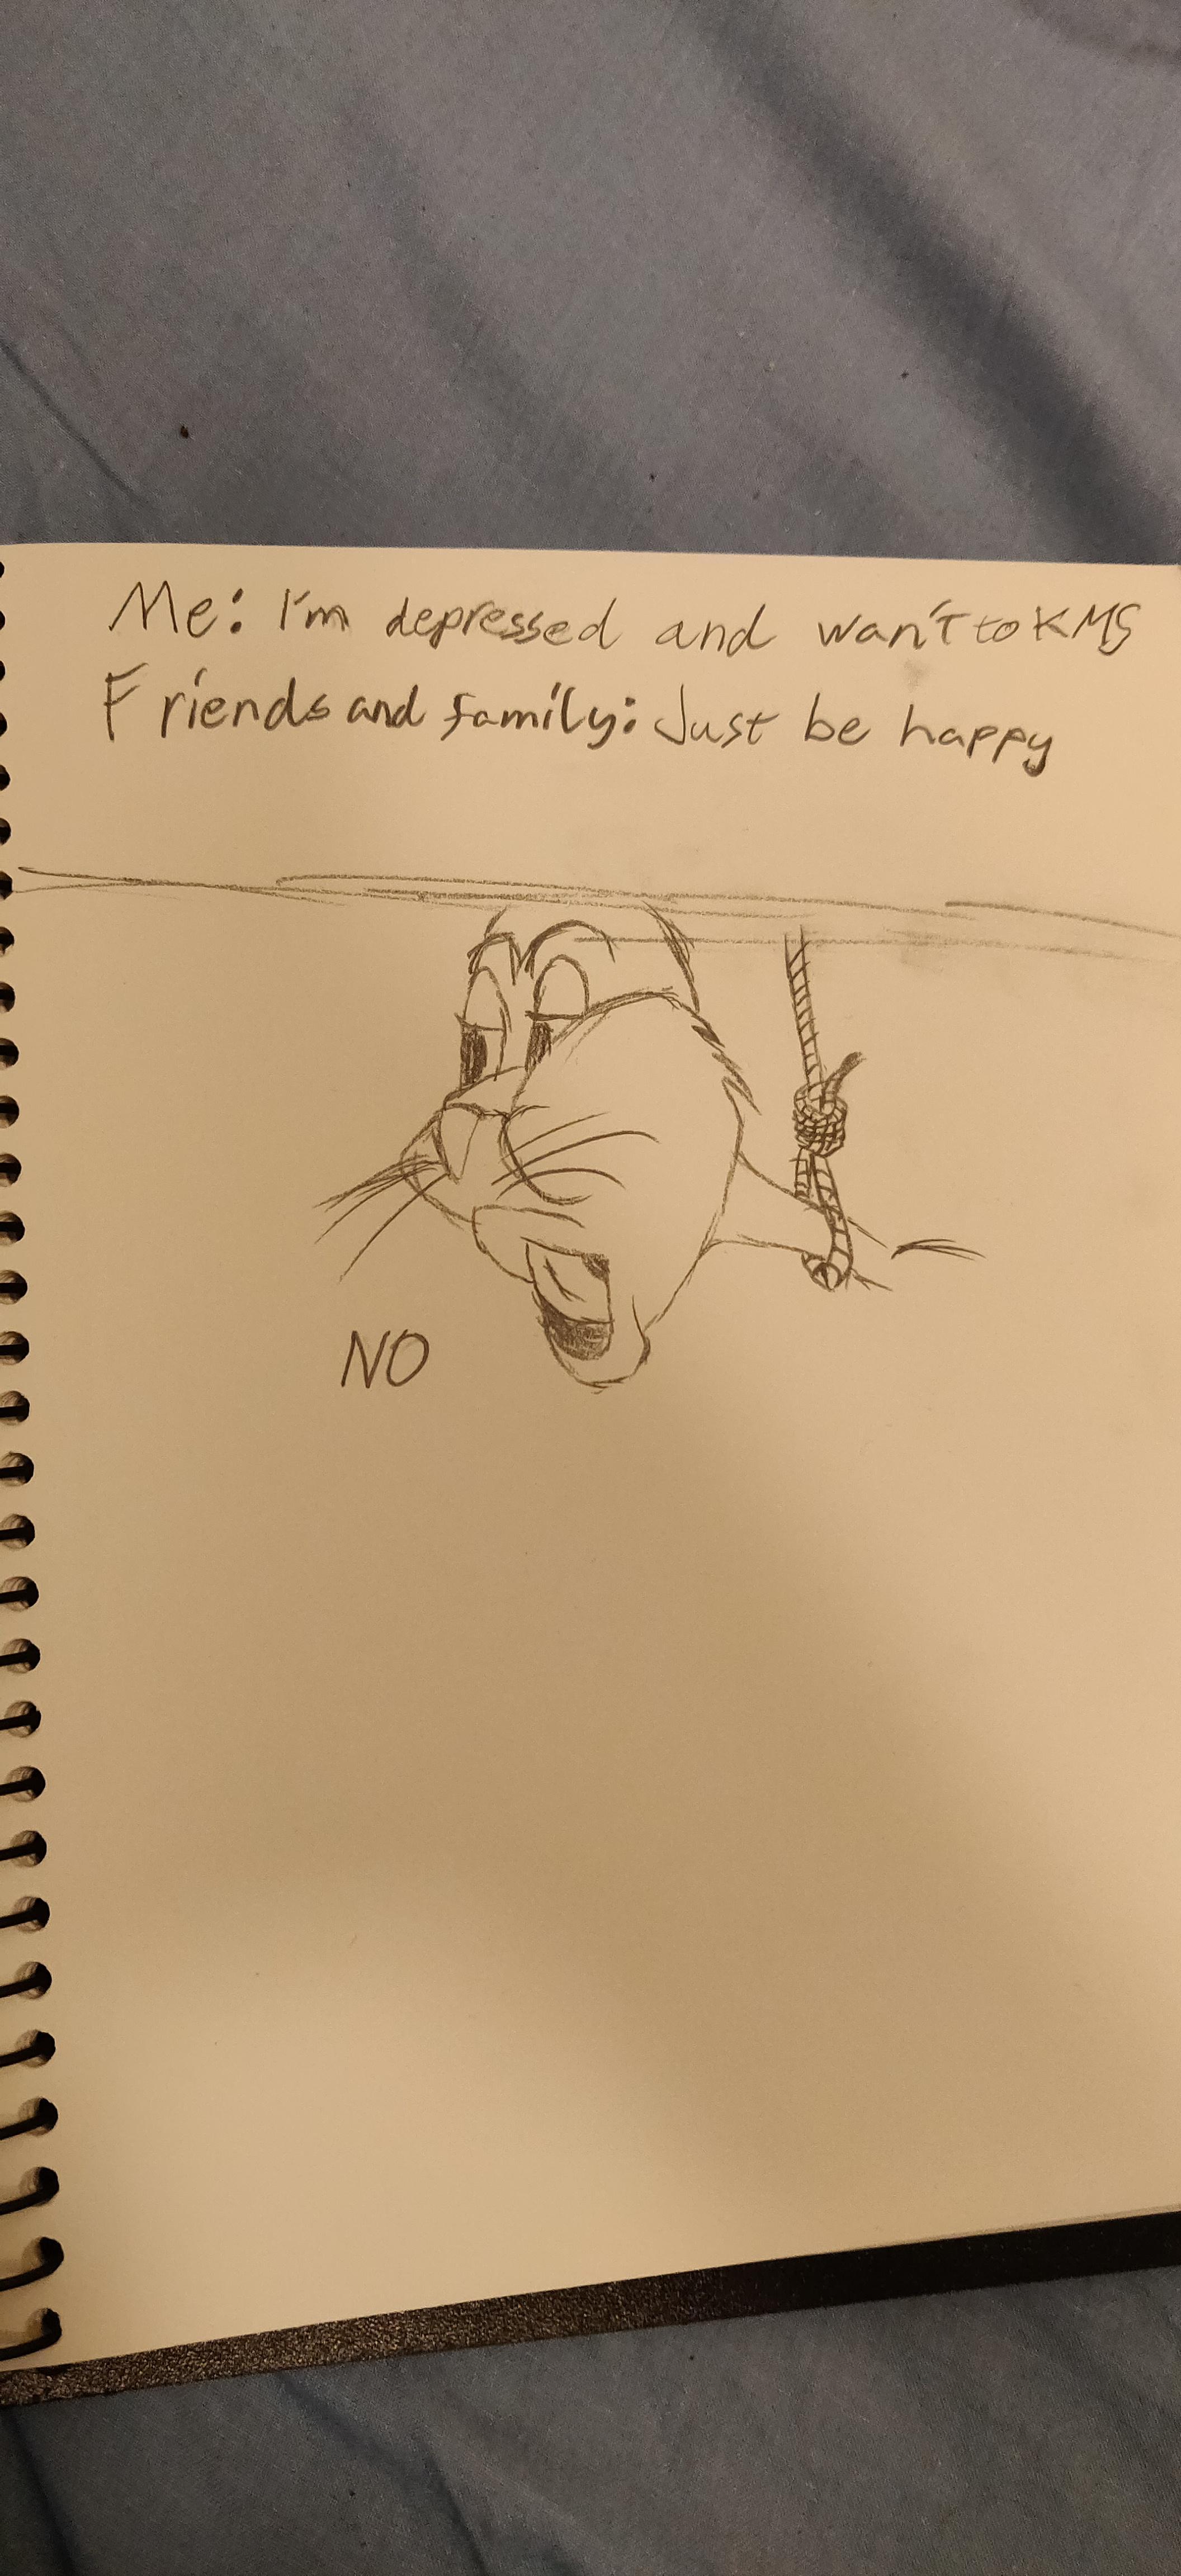 Me: I'm depressed and wan't to KMS
Friends and family: Just be happy
NO